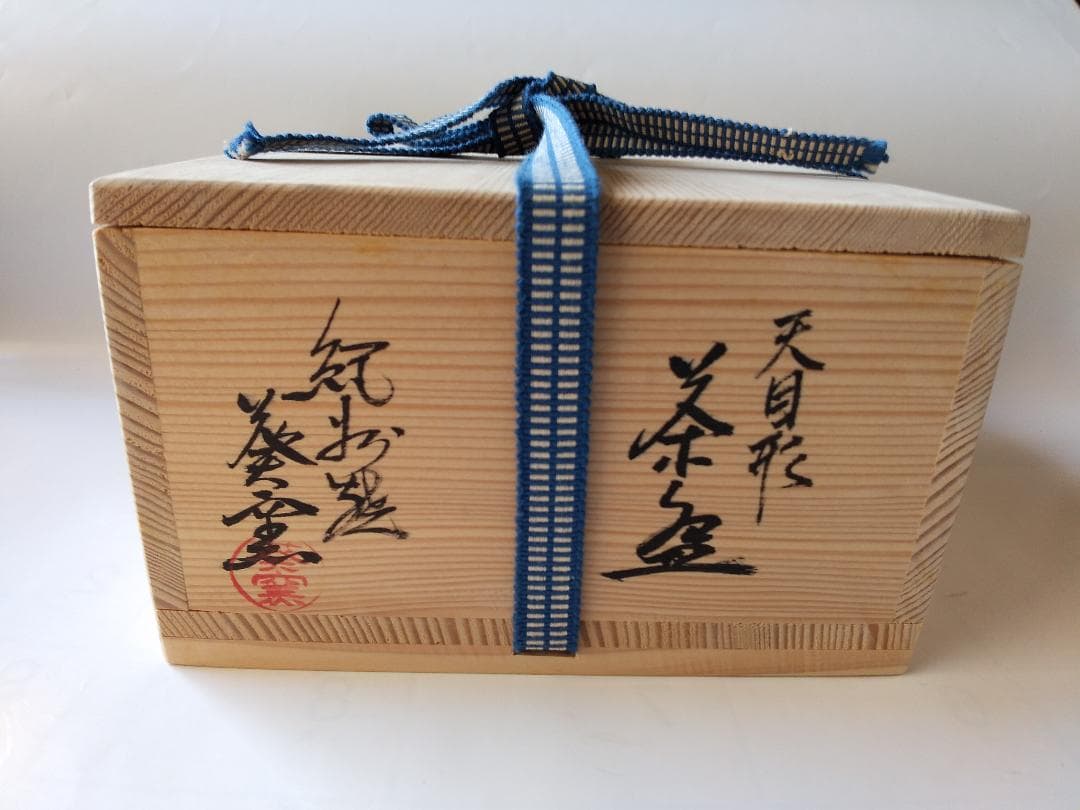 天目形
茶盌
紀州焼
葵窯